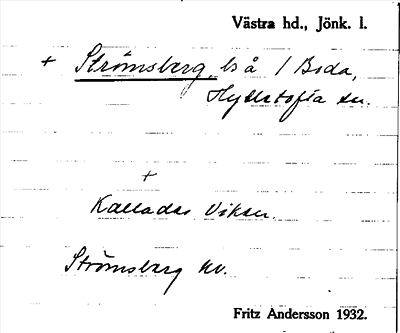 Västra hd., Jönk. l.
+ Strömsberg, bs å 1 Boda,
Hylletofta sn.
+
Kallades Viken.
Strömsberg kv.
Fritz Andersson 1932.